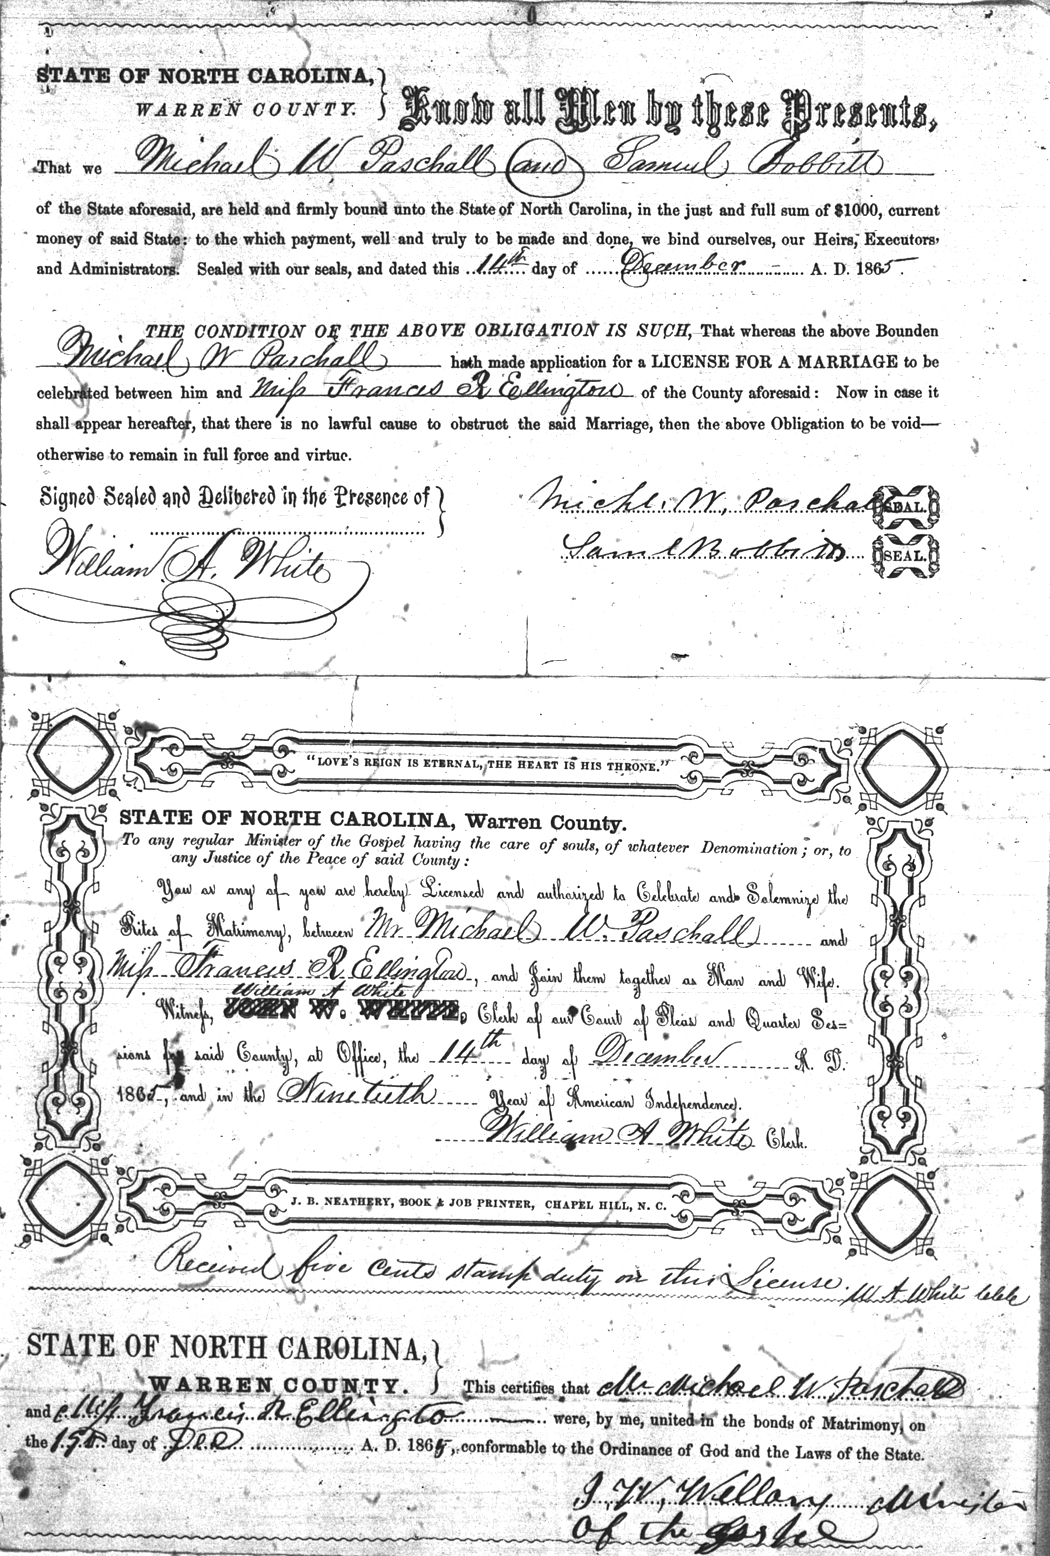 STATE OF NORTH CAROLINA,
WARREN COUNTY.
Know all Men by these Presents,
That we Michael W Paschall and Samuel Bobbitt
of the State aforesaid, are held and firmly bound unto the State of North Carolina, in the just and full sum of $1000, current
money of said State: to the which payment, well and truly to be made and done, we bind ourselves, our Heirs, Executors,
and Administrators. Sealed with our seals, and dated this 14th day of December A. D. 1865.
THE CONDITION OF THE ABOVE OBLIGATION IS SUCH, That whereas the above Bounden
Michael W Paschall hath made application for a LICENSE FOR A MARRIAGE to be
celebrated between him and Miss Frances R Ellington of the County aforesaid: Now in case it
shall appear hereafter, that there is no lawful cause to obstruct the said Marriage, then the above Obligation to be void—
otherwise to remain in full force and virtue.
Signed Sealed and Delivered in the Presence of
Michl. W. Paschall SEAL.
William A. White
Saml Bobbitt SEAL.
"LOVE'S REIGN IS ETERNAL, THE HEART IS HIS THRONE."
STATE OF NORTH CAROLINA, Warren County.
To any regular Minister of the Gospel having the care of souls, of whatever Denomination; or, to
any Justice of the Peace of said County:
You or any of you are hereby Licensed and authorized to Celebrate and Solemnize the
Rites of Matrimony, between Mr Michael W. Paschall and
Miss Frances R Ellington, and Join them together as Man and Wife.
William A White
Witness, JOHN W. WHITE, Clerk of our Court of Pleas and Quarter Ses=
sions for said County, at Office, the 14th day of December A. D.
1865, and in the Ninetieth Year of American Independence.
William A White Clerk.
J. B. NEATHERY, BOOK & JOB PRINTER, CHAPEL HILL, N. C.
Received five cents stamp duty on this License. W A White Clk
STATE OF NORTH CAROLINA,
WARREN COUNTY.
This certifies that Mr Michael W Paschall
and Miss Francis R Ellington were, by me, united in the bonds of Matrimony, on
the day of Dec A. D. 1865, conformable to the Ordinance of God and the Laws of the State.
W, Minister
of the Gospel